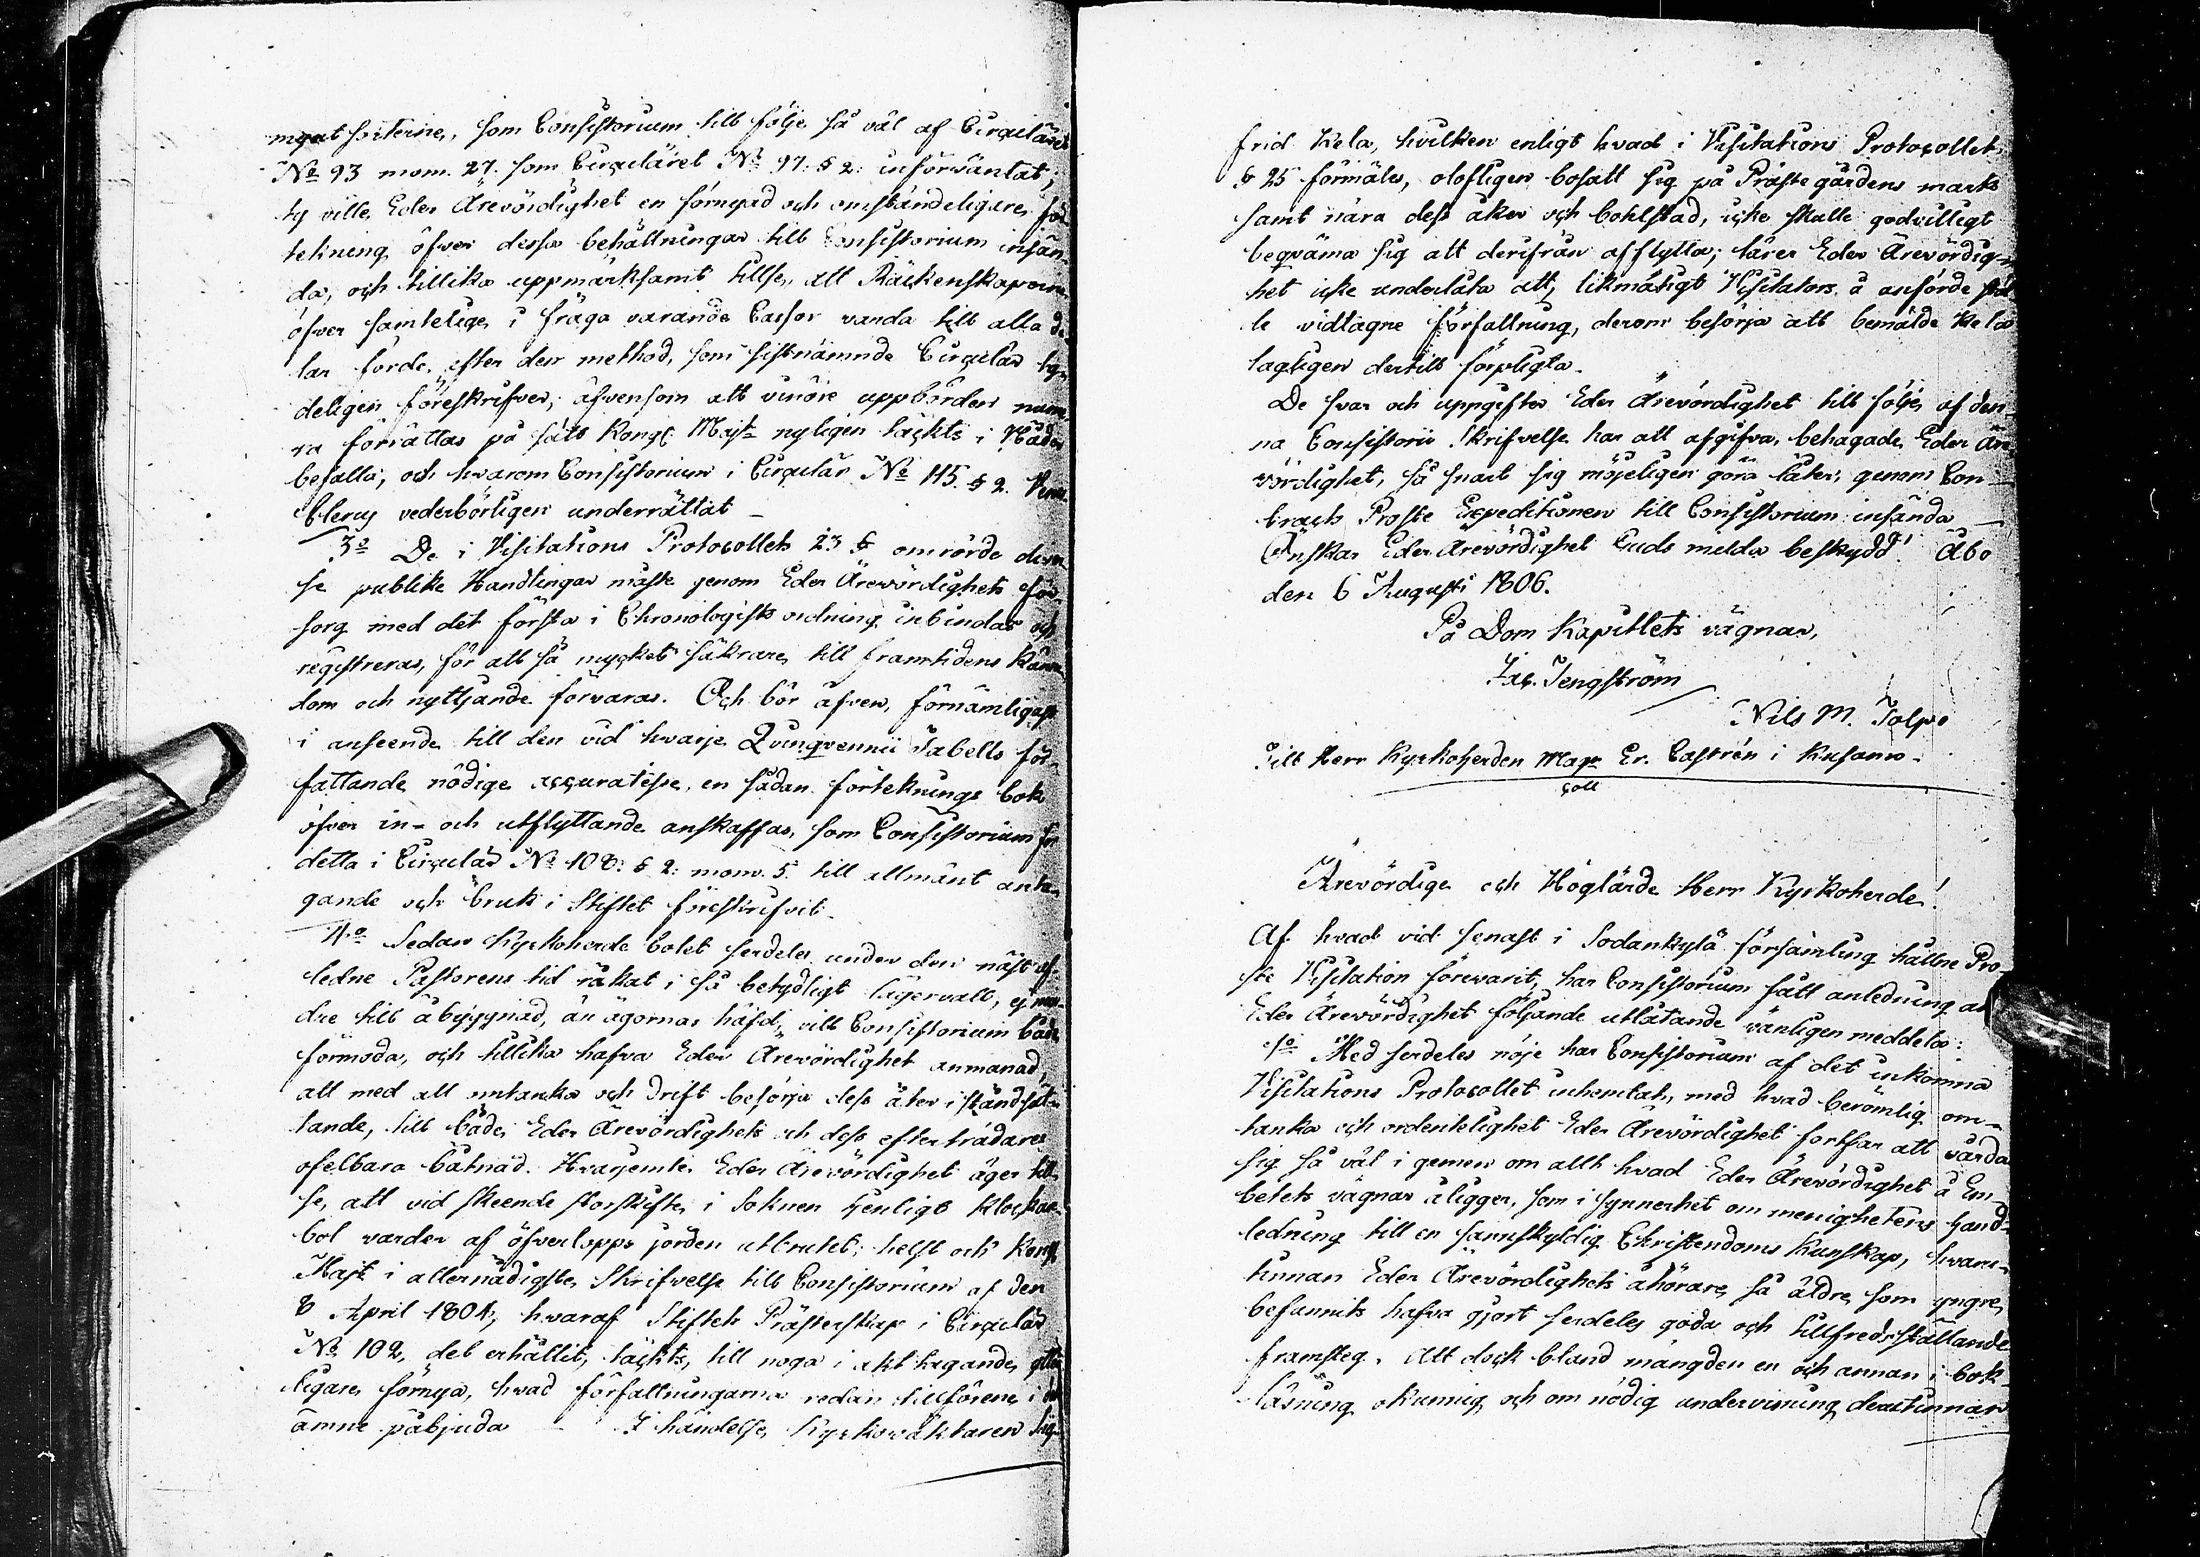 som Consistorium till följe så väl af Circuläret
No 93 mom. 27. som Circuläret No 97: § 2: införväntat;
ty ville Eder Ärevördighet en förnyad och omständeligare för-
tekning öfver dessa behållningar till Consistorium insän-
da, och tillika uppmärksamt tillse, att Räkenskaperne
öfver samtelige i fråga varande Cassor varda till alla de-
lar förde efter den method, som sistnämnde Circulär ty-
deligen föreskrifver; äfvensom att vinöre uppbörden nume-
ra förrättas på sätt Kongl. Majt nyligen täckts i Nåder
befalla, och hvarom Consistorium i Circulär No 115. § 2. Vener.
Clerus vederbörligen underrättat _
3o De i Visitations Protocollets 23 § omrörde diver-
se publike Handlingar måste genom Eder Ärevördighets för-
sorg med det första i Chronologisk ordning inbindas och
registreras, för att så mycket säkrare till framtidens känne-
dom och nyttjande förvaras. Och bör äfven, förnämligast
i anseende till den vid hvarje Qvinqvennii Tabells för-
fattande nödige accuratesse, en sådan förteknings bok
öfver in- och utflyttande anskaffas, som Consistorium för
detta i Circulär No 108: § 2: mom. 5. till allmänt anta-
gande och bruk i Stiftet föreskrifvit.
4o Sedan Kyrkoherde bolet serdeles under den näst af-
ledne Pastorens tid råkat i så betydligt lägervall, ej min-
dre till åbyggnad, än ägornas häfd, vill Consistorium både
förmoda, och tillika hafva Eder Ärevördighet anmanad,
att med all omtanka och drift besörja dess åter i ståndsät-
tande, till både Eder Ärevördighets och dess efterträdares
ofelbara båtnad. Hvarjemte Eder Ärevördighet äger till-
se, att vid skeende storskifte i Soknen tjenligt Klockare
bol varder af öfverlopps jorden utbrutet; helst och Kongl.
Majt i allernådigste Skrifvelse till Consistorium af den
8 April 1804, hvaraf Stiftets Prästerskap i Circulär
No 102, del erhållit, täckts, till noga i akt tagande, ytter-
ligare förnya, hvad författningarna redan tillförene i
ämne påbjuda _ I händelse, Kyrkoväktaren Sig-
frid Kela, hvilken enligt hvad i Visitations Protocollets
§ 25 förmäles, olofligen bosatt sig på Prästegårdens mark
samt nära dess åker och bohlstad, icke skulle godvilligt
beqväma sig att derifrån afflytta; lärer Eder Ärevördig-
het icke underlåta att, likmätigt Visitators å anförde stäl-
le vidtagne författning, derom besörja att bemälde Kela
lagligen dertill förpligtas.
De svar och uppgifter Eder Ärevördighet till följe af den-
na Consistorii Skrifvelse har att afgifva, behagade Eder Äre-
vördighet, så snart sig möjeligen göra låter, genom Con-
tracts Proste Expeditionen till Consistorium insända _
Önskar Eder Ärevördighet Guds milda beskydd! Åbo
den 6 Augusti 1806.
På Dom Kapitlets vägnar,
Jac. Tengström
Nils M. Tolpo
Till Herr Kyrkoherden Mag. Er. Castrén i Kusamo.
coll
Ärevördige och Höglärde Herr Kyrkoherde!
Af hvad vid senast i Sodankylä församling hållne Pro-
ste Visitation förevarit, har Consistorium fått anledning at
Eder Ärevördighet följande utlåtande vänligen meddela:
1o Med serdeles nöje har Consistorium af det inkomna
Visitations Protocollet inhemtat, med hvad berömlig om-
tanka och ordentelighet Eder Ärevördighet fortfar att vårda
sig så väl i gemen om allt hvad Eder Ärevördighet å Em-
betets vägnar åligger, som i synnerhet om menighetens hand-
ledning till en sannskyldig Christendoms Kunskap, hvaru-
tinnan Eder Ärevördighets åhörare, så äldre som yngre,
befunnits hafva gjort serdeles goda och tillfredsställande
framsteg. Att dock bland mängden en och annan i bok-
läsning okunnig, och om nödig undervisning derutinnan